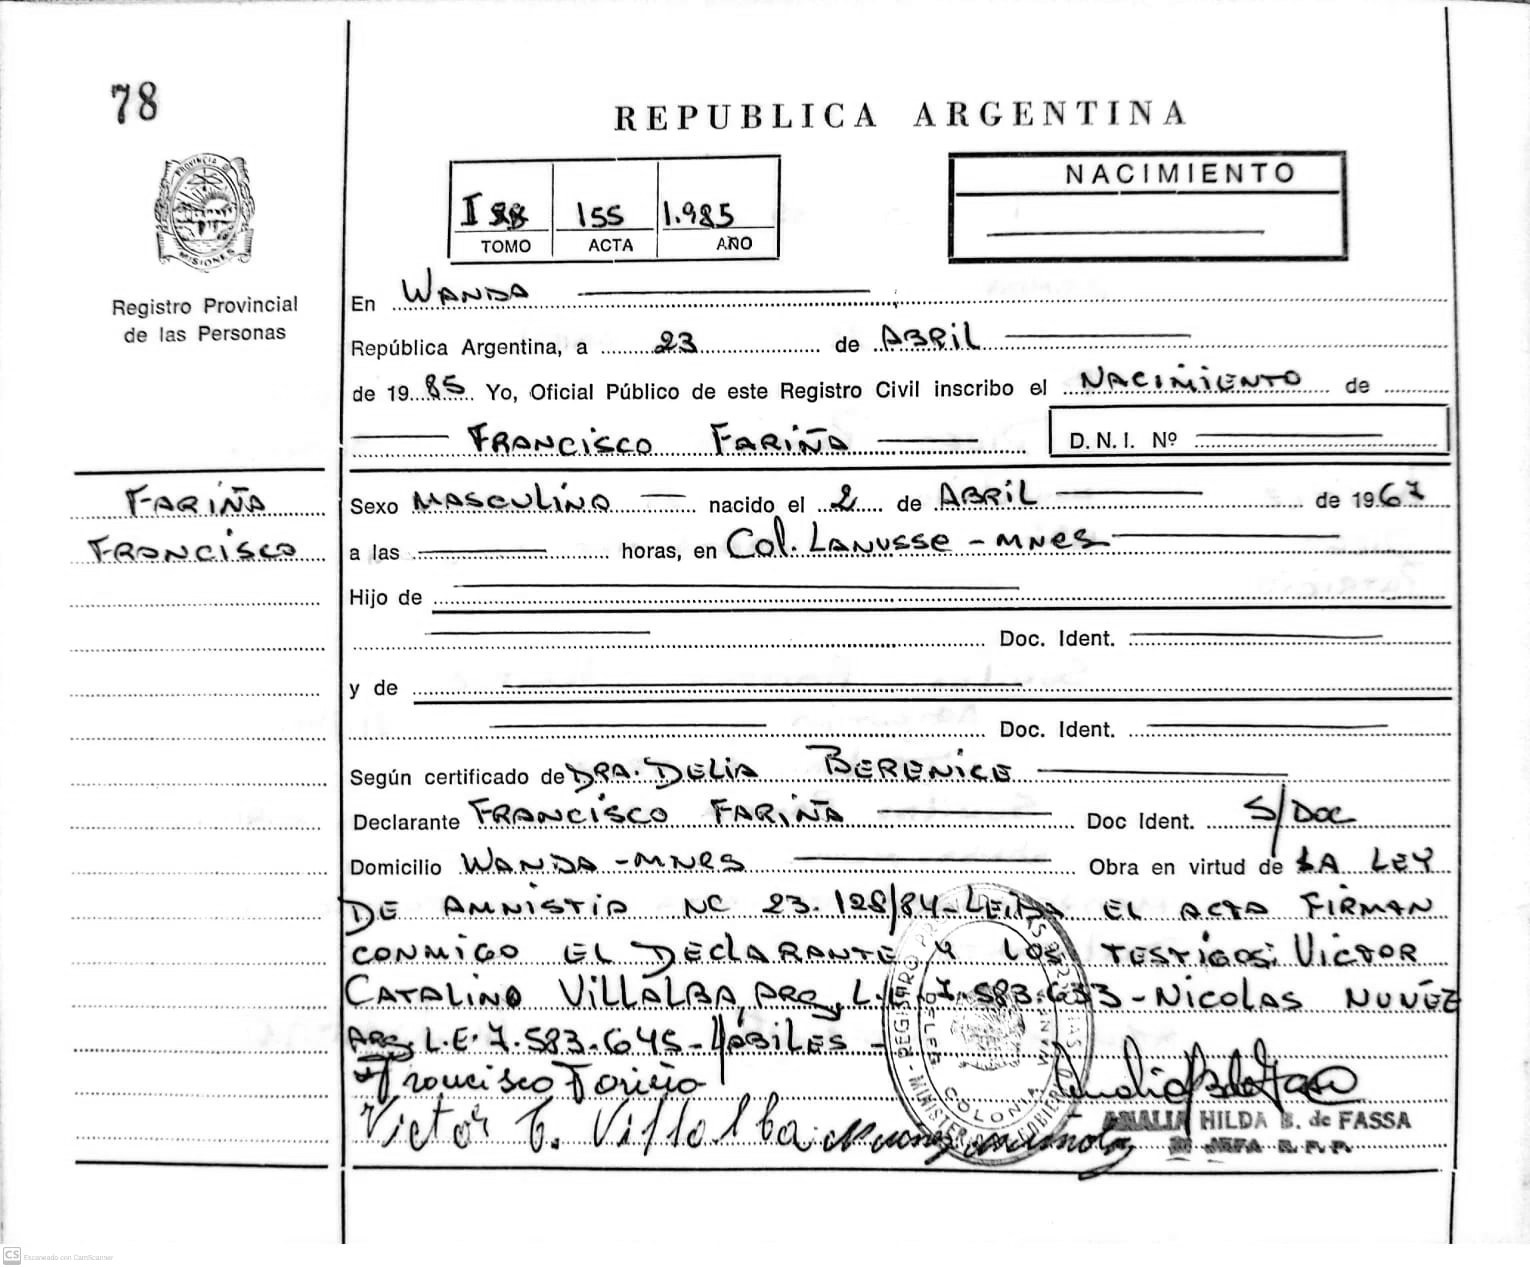 78
REPUBLICA ARGENTINA
PROVINCIA
MISIONES
Registro Provincial
de las Personas
I 155 1.985
TOMO ACTA AÑO
NACIMIENTO
En WANDA
República Argentina, a 23 de ABRIL
de 1985 Yo, Oficial Público de este Registro Civil inscribo el NACIMIENTO de
FRANCISCO FARIÑA D.N.I. Nº
FARIÑA
FRANCISCO
Sexo MASCULINO nacido el 2 de ABRIL de 1967
a las horas, en Col. LANUSSE - MNES
Hijo de
Doc. Ident.
y de
Doc. Ident.
Según certificado de DRA. DELIA BERENICE
Declarante FRANCISCO FARIÑA Doc Ident. S/DOC
Domicilio WANDA - MNES Obra en virtud de LA LEY
DE AMNISTIA NC 23.128/84 - LEIDA EL ACTA FIRMAN
CONMIGO EL DECLARANTE Y LOS TESTIGOS: VICTOR
CATALINO VILLALBA, ARG. L.E. 7.583.633 - NICOLAS NUÑEZ
ARG. L.E. 7.583.645 - HÁBILES -
Francisco Fariña
Victor C. Villalba
AMALIA HILDA B. de FASSA
JEFA R.P.P.
COLONIA WANDA
CS Escaneado con CamScanner